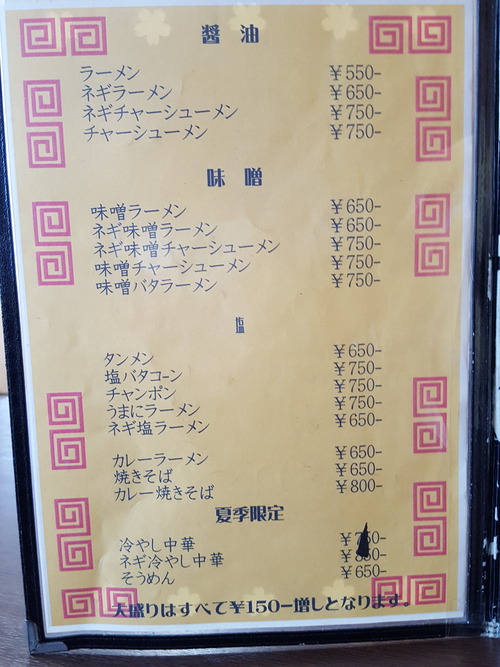 醤 油
ラーメン ￥550-
ネギラーメン ￥650-
ネギチャーシューメン ￥750-
チャーシューメン ￥750-
味 噌
味噌ラーメン ￥650-
ネギ味噌ラーメン ￥650-
ネギ味噌チャーシューメン ￥750-
味噌チャーシューメン ￥750-
味噌バタラーメン ￥750-
塩
タンメン ￥650-
塩バタコーン ￥750-
チャンポン ￥750-
うまにラーメン ￥750-
ネギ塩ラーメン ￥650-
カレーラーメン ￥650-
焼きそば ￥650-
カレー焼きそば ￥800-
夏季限定
冷やし中華
ネギ冷やし中華
そうめん ￥650-
大盛りはすべて￥150-増しとなります。